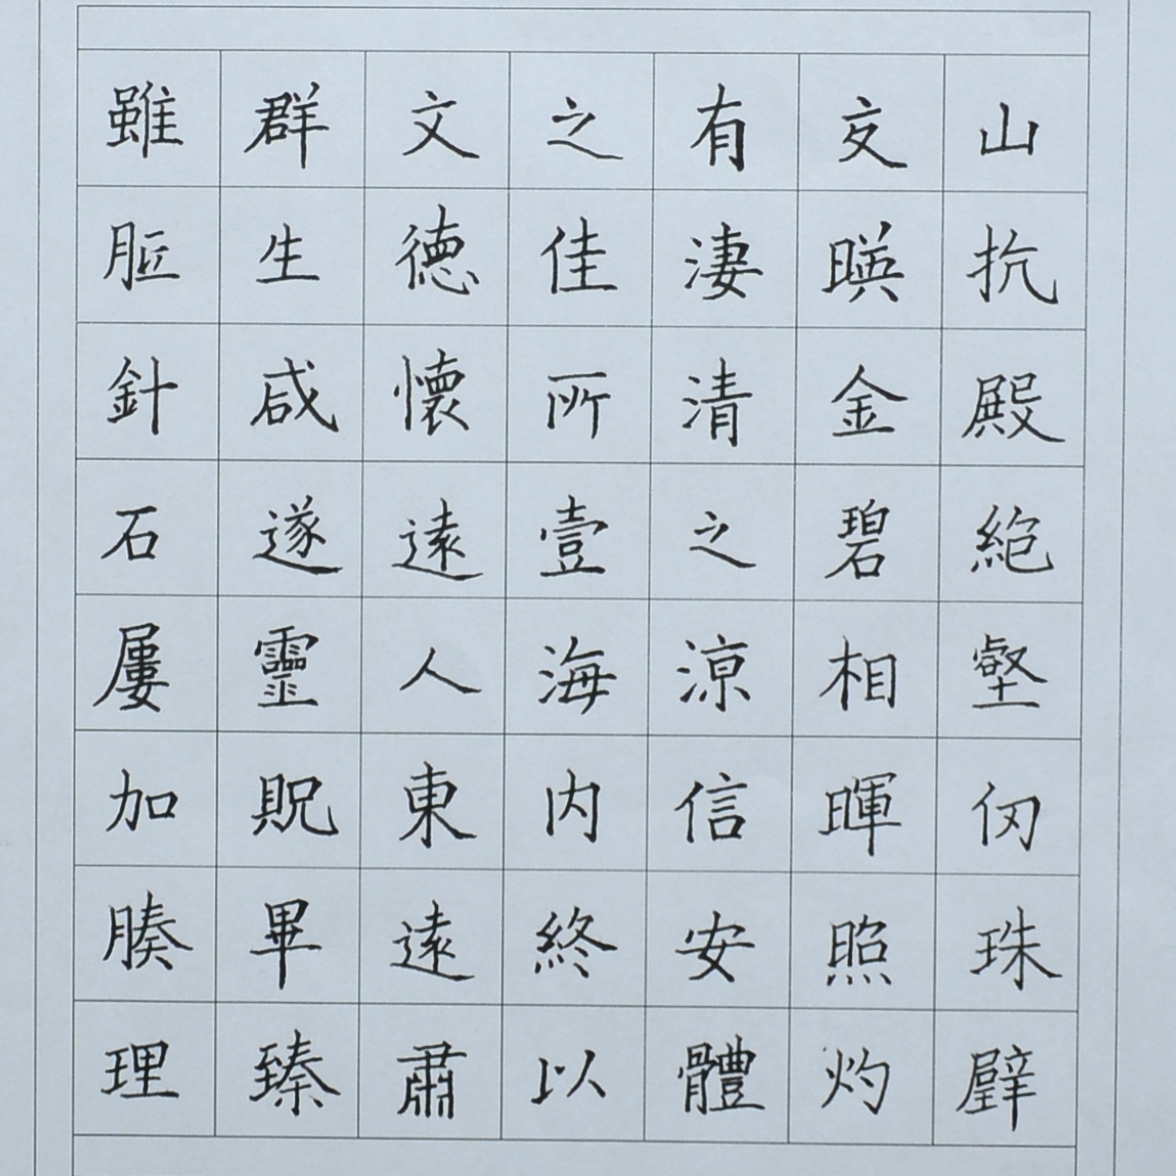 山抗殿絶壑仞珠璧
交暎金碧相暉照灼
有淒清之涼信安體
之佳所壹海内終以
文德懷遠人東遠肅
群生咸遂靈貺畢臻
雖㽷針石屢加腠理